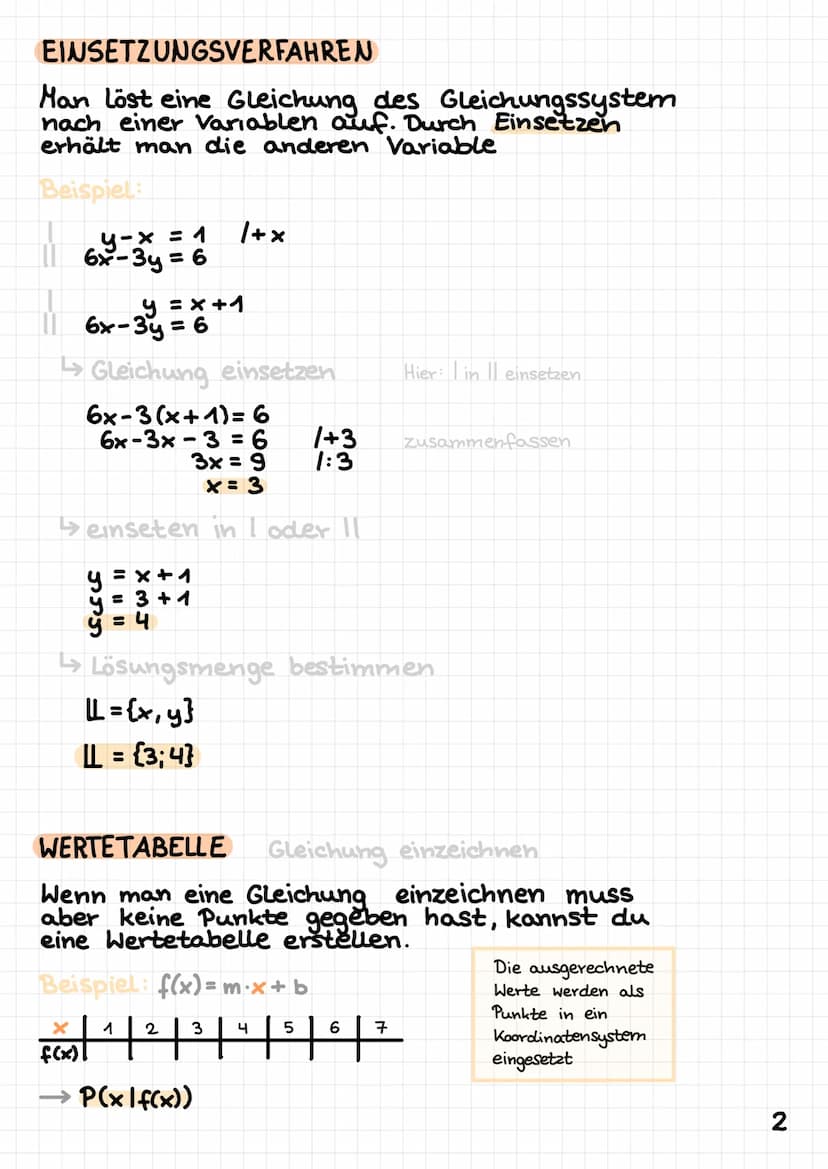 EINSETZUNGSVERFAHREN
Man löst eine Gleichung des Gleichungssystem
nach einer Variablen auf. Durch Einsetzen
erhält man die anderen Variable
Beispiel:
I y-x = 1 /+x
II 6x-3y = 6
I y = x+1
II 6x-3y = 6
↳ Gleichung einsetzen Hier: I in II einsetzen
6x-3(x+1)= 6
6x-3x-3 = 6 /+3 zusammenfassen
3x = 9 /:3
x = 3
↳ einseten in I oder II
y = x+1
y = 3+1
y = 4
↳ Lösungsmenge bestimmen
𝕃 = {x, y}
𝕃 = {3; 4}
WERTETABELLE Gleichung einzeichnen
Wenn man eine Gleichung einzeichnen muss
aber keine Punkte gegeben hast, kannst du
eine Wertetabelle erstellen.
Beispiel: f(x) = m·x + b
x 1 2 3 4 5 6 7
f(x)
→ P(x|f(x))
Die ausgerechnete
Werte werden als
Punkte in ein
Koordinatensystem
eingesetzt
2